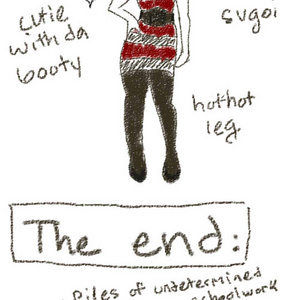 cutie
with da
booty
sugoi
hot hot
leg
The end:
Piles of undetermined
schoolwork